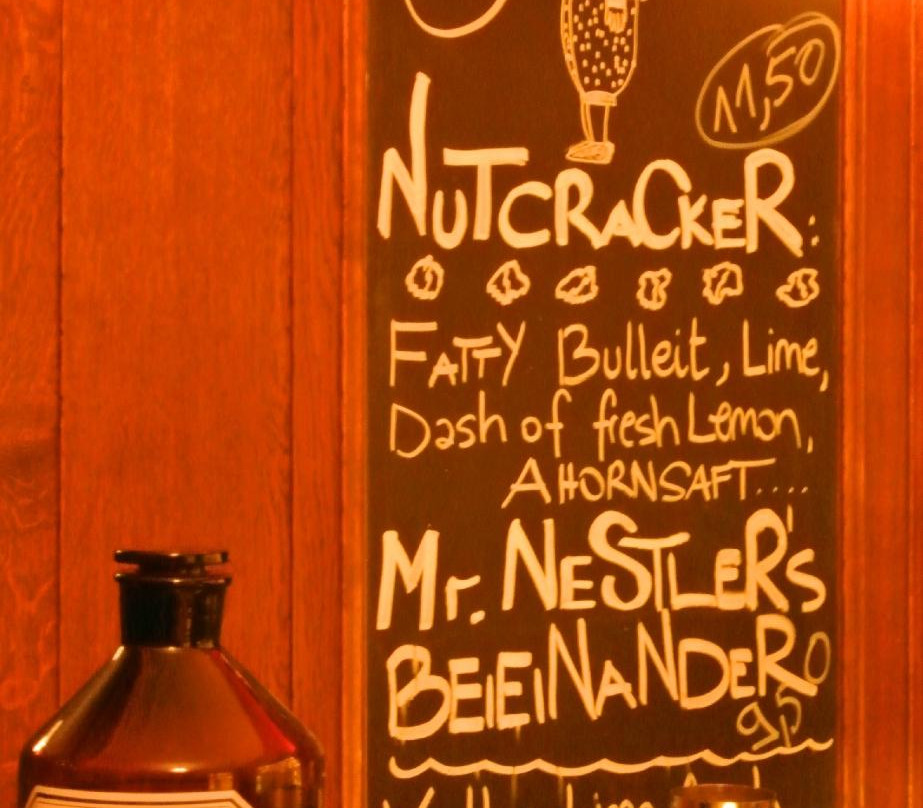 11,50
NUTCRACKER:
FATTY Bulleit, Lime,
Dash of fresh Lemon,
AHORNSAFT....
Mr. NESTLER'S
BEIEINANDER
9,50